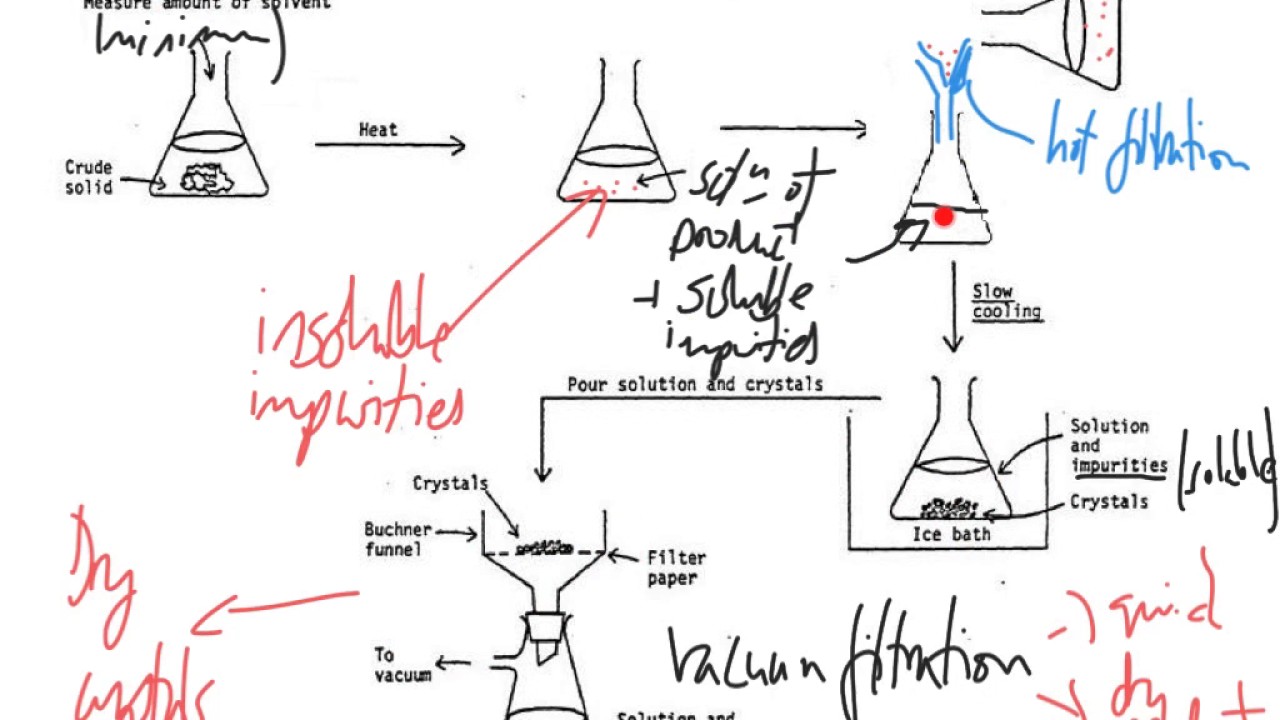 Measure amount of solvent
minimum)
Crude
solid
Heat
insoluble
impurities
sol<u>n</u> of
product
+ soluble
impurities
hot filtration
Slow
cooling
Pour solution and crystals
Solution
and
impurities (soluble)
Crystals
Ice bath
Crystals
Buchner
funnel
Filter
paper
To
vacuum
Dry
crystals
vacuum filtration
dry
Solution and